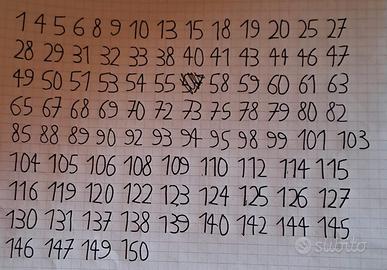 1 4 5 6 8 9 10 13 15 18 19 20 25 27
28 29 31 32 33 38 40 41 43 44 46 47
49 50 51 53 54 55 58 59 60 61 63
65 67 68 69 70 72 73 75 78 79 80 82
85 88 89 90 92 93 94 95 98 99 101 103
104 105 106 108 109 110 112 114 115
116 119 120 122 123 124 125 126 127
130 131 137 138 139 140 142 144 145
146 147 149 150
subito